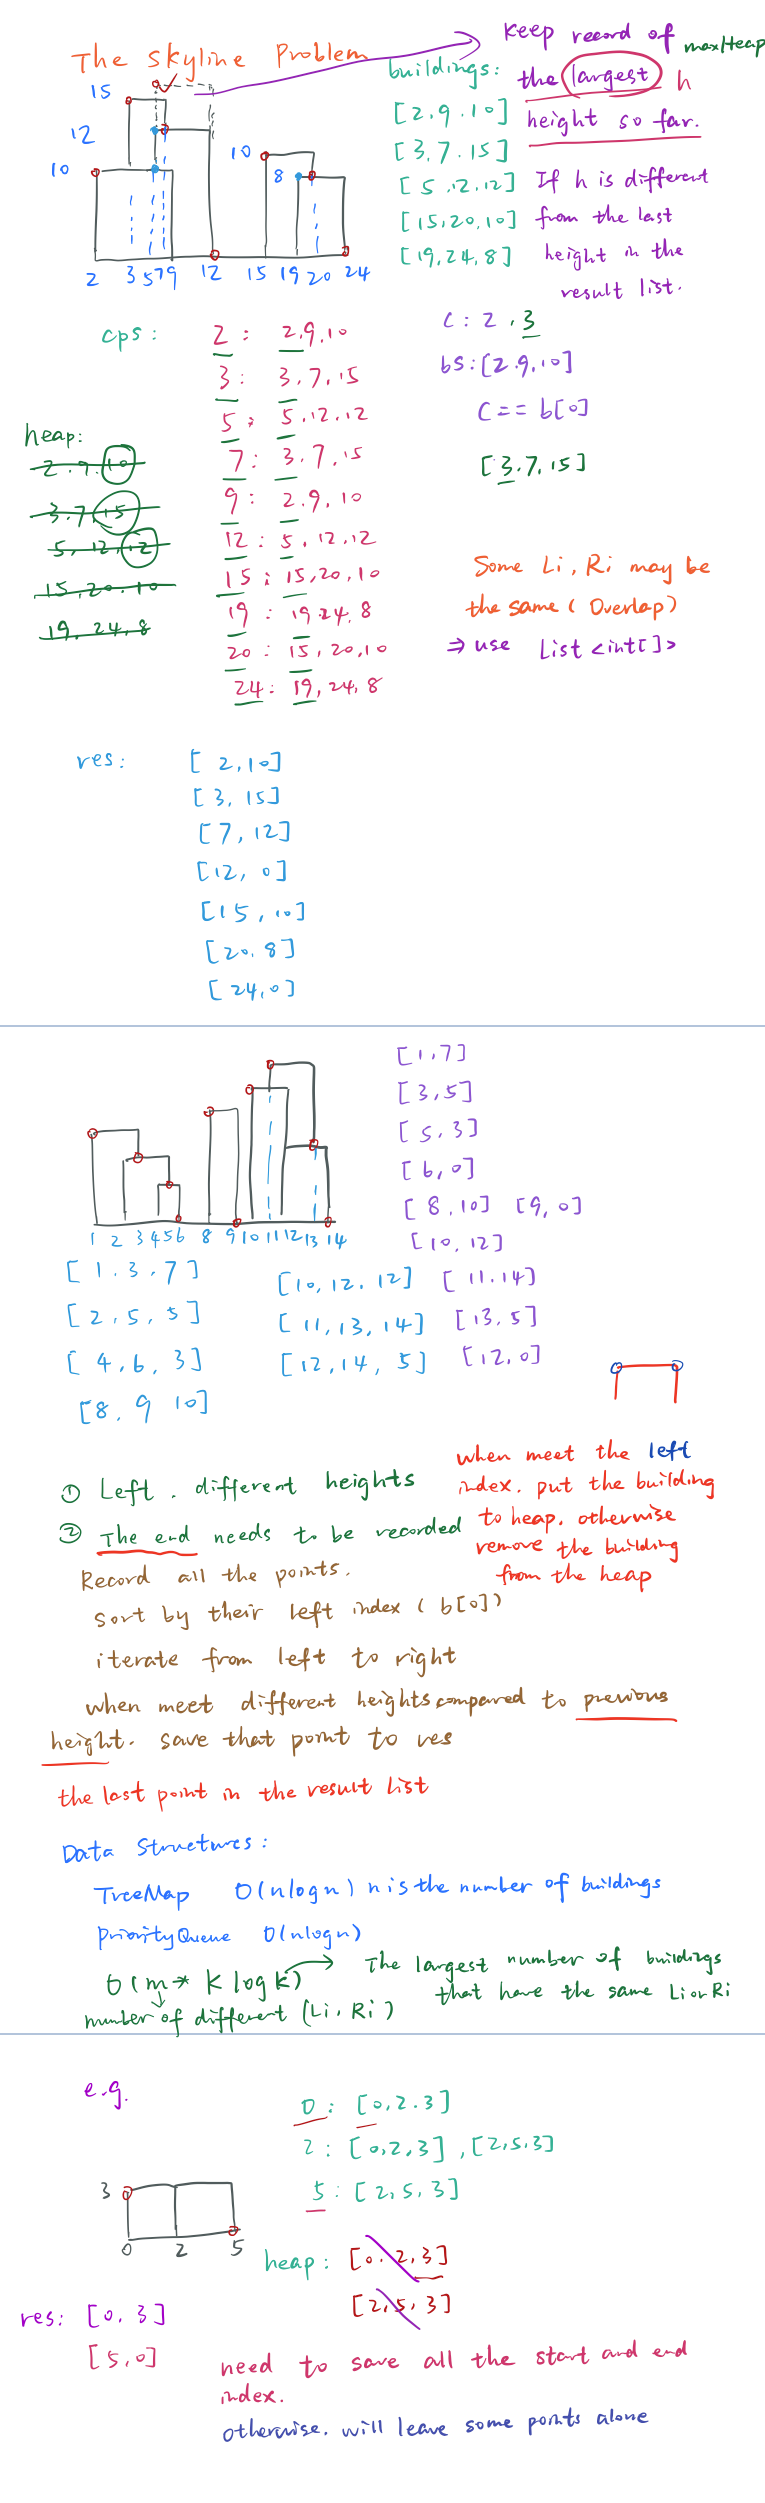 The skyline Problem
Keep record of maxHeap
the largest h
height so far.
If h is different
from the last
height in the
result list.
buildings:
[2,9,10]
[3,7,15]
[5,12,12]
[15,20,10]
[19,24,8]
15
12
10
10
8
2 3 5 7 9 12 15 19 20 24
cps:
2: 2,9,10
3: 3,7,15
5: 5,12,12
7: 3,7,15
9: 2,9,10
12: 5,12,12
15: 15,20,10
19: 19,24,8
20: 15,20,10
24: 19,24,8
c: 2, 3
bs:[2,9,10]
c == b[0]
[3,7,15]
heap:
2,9,10
3,7,15
5,12,12
15,20,10
19,24,8
Some Li, Ri may be
the same (Overlap)
⇒ use List<int[]>
res: [2,10]
[3,15]
[7,12]
[12,0]
[15,10]
[20,8]
[24,0]
1 2 3 4 5 6 8 9 10 11 12 13 14
[1,7]
[3,5]
[5,3]
[6,0]
[8,10] [9,0]
[10,12]
[11,14]
[13,5]
[12,0]
[1,3,7]
[2,5,5]
[4,6,3]
[8,9 10]
[10,12,12]
[11,13,14]
[12,14,5]
① Left. different heights
② The end needs to be recorded
when meet the left
index. put the building
to heap. otherwise
remove the building
from the heap
Record all the points.
sort by their left index (b[0])
iterate from left to right
when meet different heights compared to previous
height. save that point to res
the last point in the result list
Data Structures:
TreeMap O(nlogn) n is the number of buildings
PriorityQueue O(nlogn)
O(m* K logk) → The largest number of buildings
that have the same Li or Ri
number of different (Li, Ri)
e.g.
0: [0,2,3]
2: [0,2,3],[2,5,3]
5: [2,5,3]
3
0 2 5
heap: [0,2,3]
[2,5,3]
res: [0,3]
[5,0]
need to save all the start and end
index.
otherwise. will leave some points alone